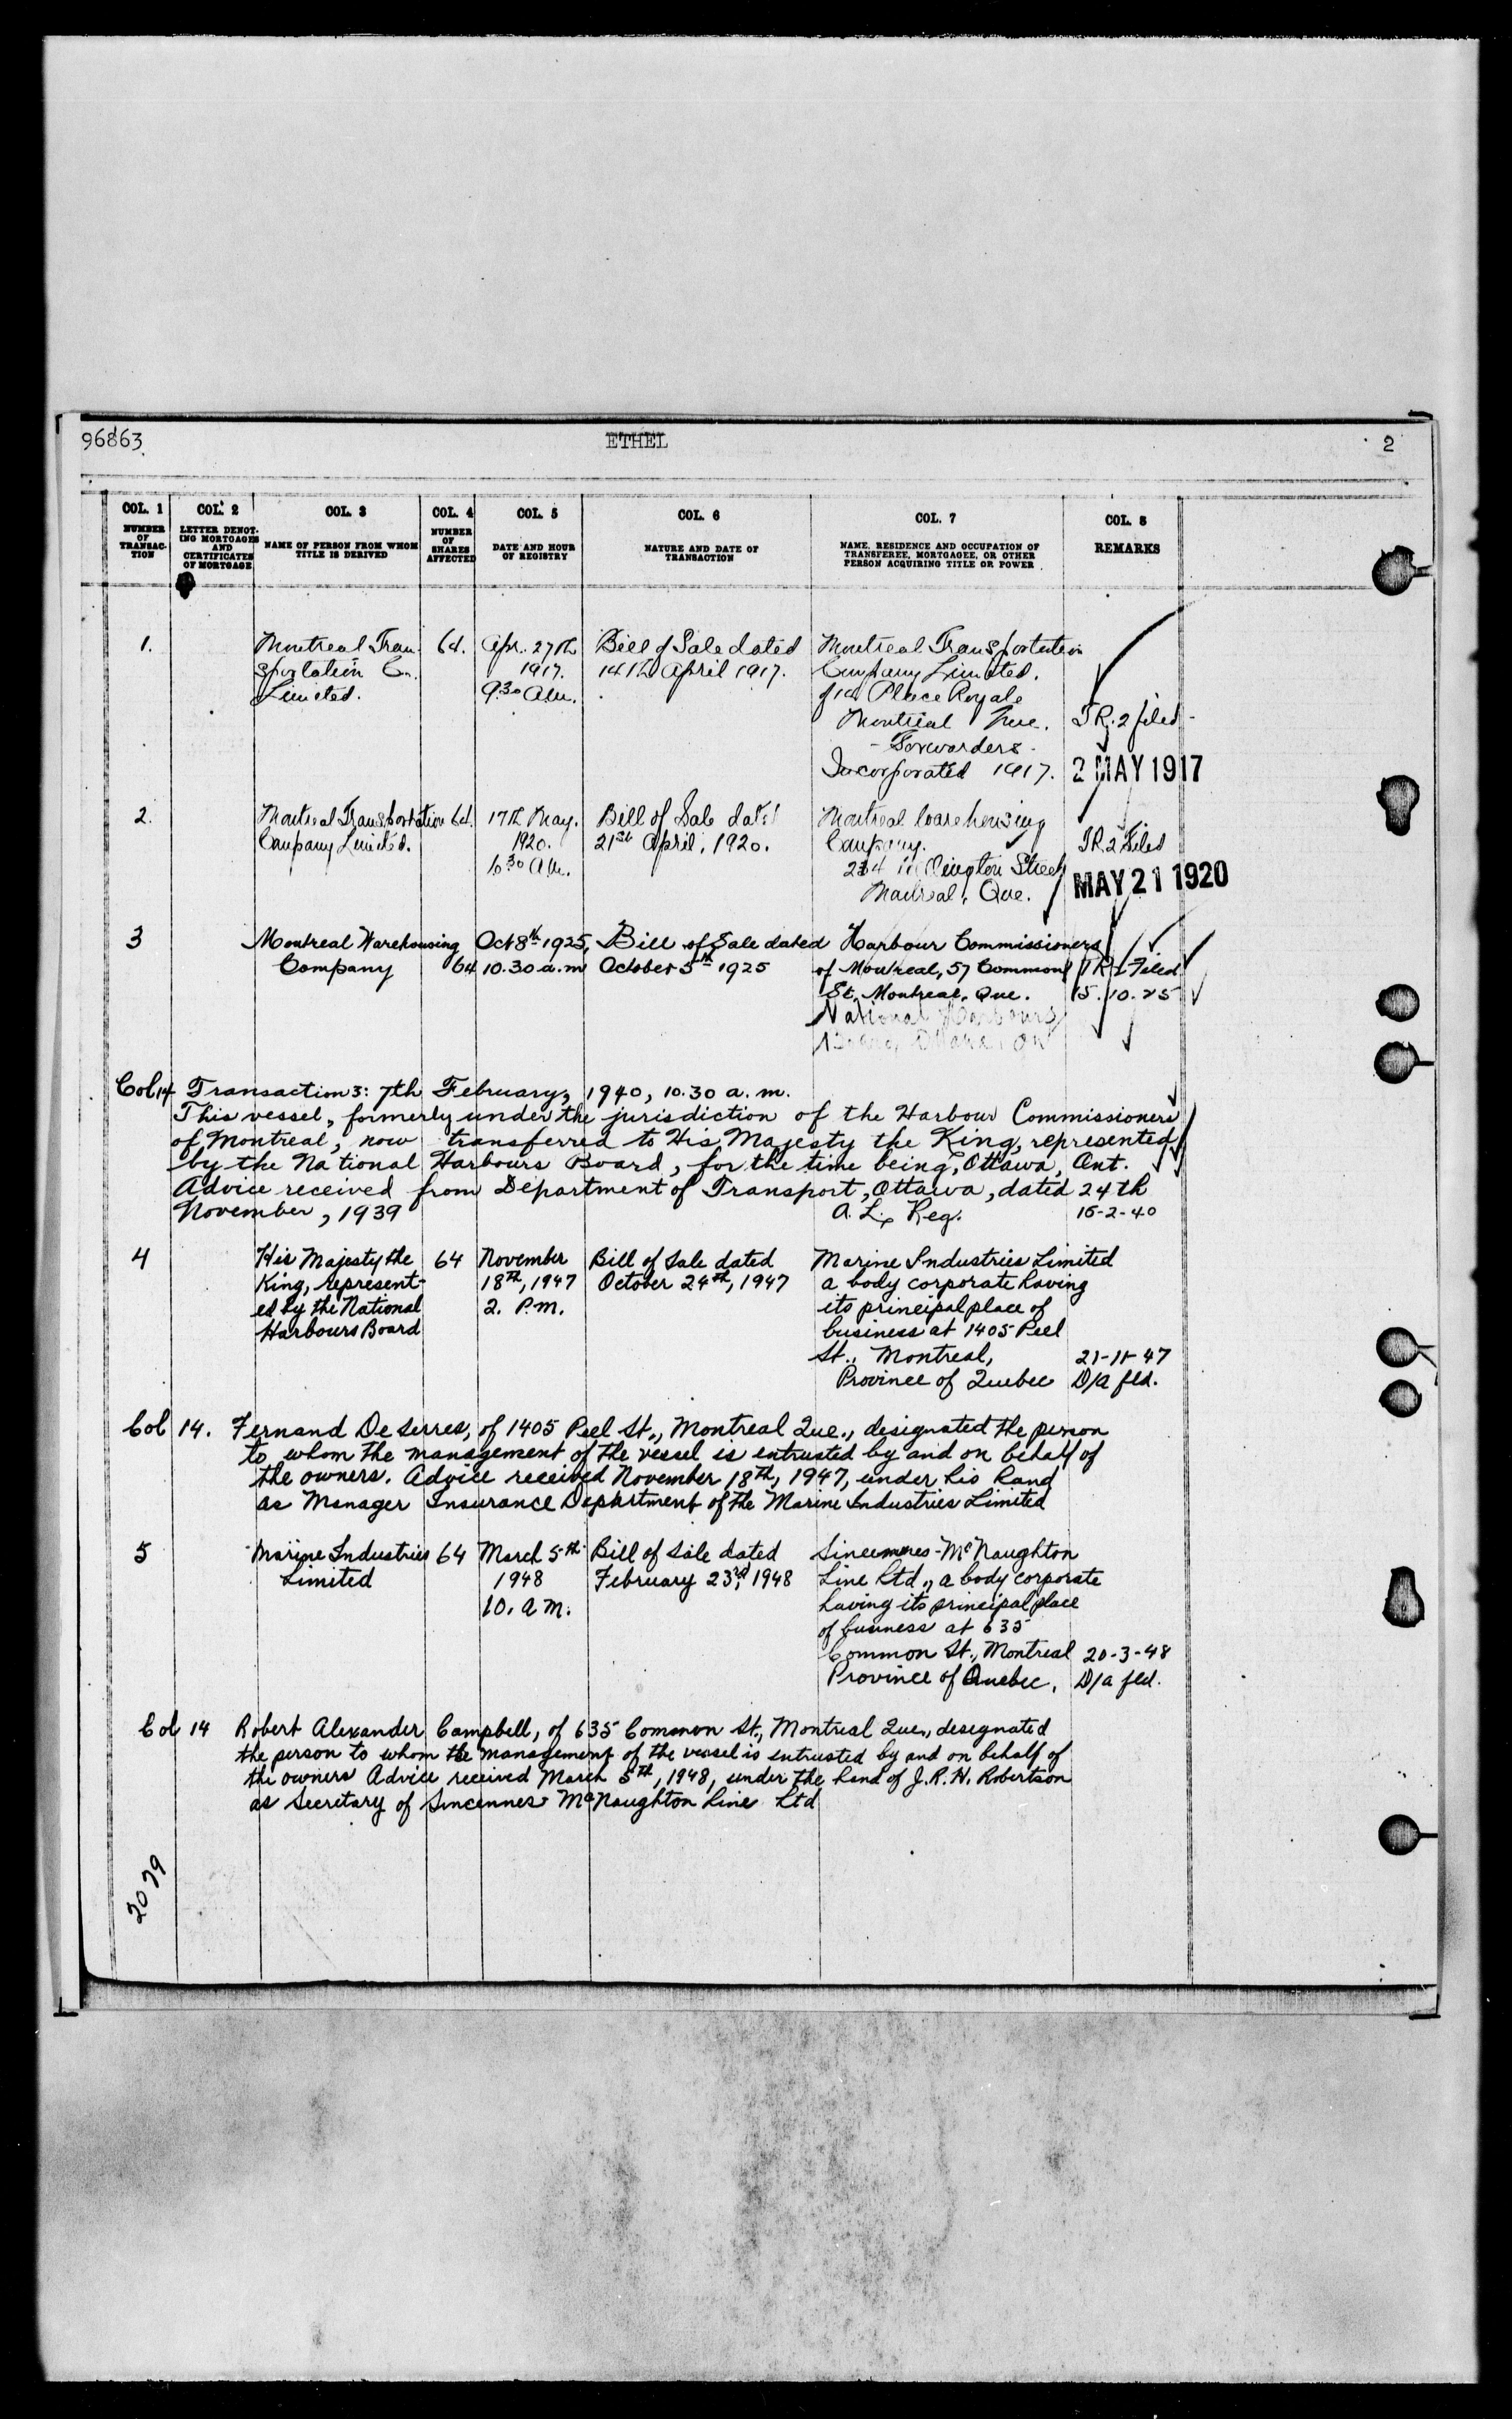 96863
ETHEL
2
COL. 1 COL. 2 COL. 3 COL. 4 COL. 5 COL. 6 COL. 7 COL. 8
NUMBER OF TRANSACTION
LETTER DENOTING MORTGAGES AND CERTIFICATES OF MORTGAGE
NAME OF PERSON FROM WHOM TITLE IS DERIVED
NUMBER OF SHARES AFFECTED
DATE AND HOUR OF REGISTRY
NATURE AND DATE OF TRANSACTION
NAME, RESIDENCE AND OCCUPATION OF TRANSFEREE, MORTGAGEE, OR OTHER PERSON ACQUIRING TITLE OR POWER
REMARKS
1.
Montreal Tran
sportation Co.
Limited.
64.
Apr. 27th
1917.
9.30 a.m.
Bill of Sale dated
14th April 1917.
Montreal Transportation
Company Limited.
Place Royale
Montreal Que.
- Forwarders -
Incorporated 1917.
T.R. 2 filed -
2 MAY 1917
2.
Montreal Transportation
Company Limited.
64.
17th May.
1920.
a.m.
Bill of Sale dated
21st April, 1920.
Montreal Warehousing
Company.
234 Wellington Street
Montreal, Que.
T.R. 2 Filed
MAY 21 1920
3
Montreal Warehousing
Company
64
Oct 8th 1925,
10.30 a.m
Bill of Sale dated
October 5th 1925
Harbour Commissioners
of Montreal, 57 Common
St. Montreal, Que.
National Harbours
Board, Ottawa, Ont
Filed
15.10.25
Col 14 Transaction 3: 7th February, 1940, 10.30 a.m.
This vessel, formerly under the jurisdiction of the Harbour Commissioners
of Montreal, now transferred to His Majesty the King, represented
by the National Harbours Board, for the time being, Ottawa, Ont.
Advice received from Department of Transport, Ottawa, dated 24th
November, 1939
Reg.
15-2-40
4
His Majesty the
King, represent-
ed by the National
Harbours Board
64
November
18th, 1947
2. P.m.
Bill of Sale dated
October 24th, 1947
Marine Industries Limited
a body corporate having
its principal place of
business at 1405 Peel
St., Montreal,
Province of Quebec
21-11-47
D/a fld.
Col 14. Fernand De Serres, of 1405 Peel St., Montreal Que., designated the person
to whom the management of the vessel is entrusted by and on behalf of
the owners. Advice received November 18th, 1947, under his hand
as Manager Insurance Department of the Marine Industries Limited
5
Marine Industries
Limited
64
March 5th
1948
10. a.m.
Bill of Sale dated
February 23rd, 1948
Sincennes-McNaughton
Line Ltd., a body corporate
having its principal place
of business at 635
Common St., Montreal
Province of Quebec.
20-3-48
D/a fld.
Col 14 Robert Alexander Campbell, of 635 Common St., Montreal Que., designated
the person to whom the management of the vessel is entrusted by and on behalf of
the owners Advice received March 5th, 1948, under the hand of J.R.H. Robertson
as Secretary of Sincennes McNaughton Line Ltd
2079